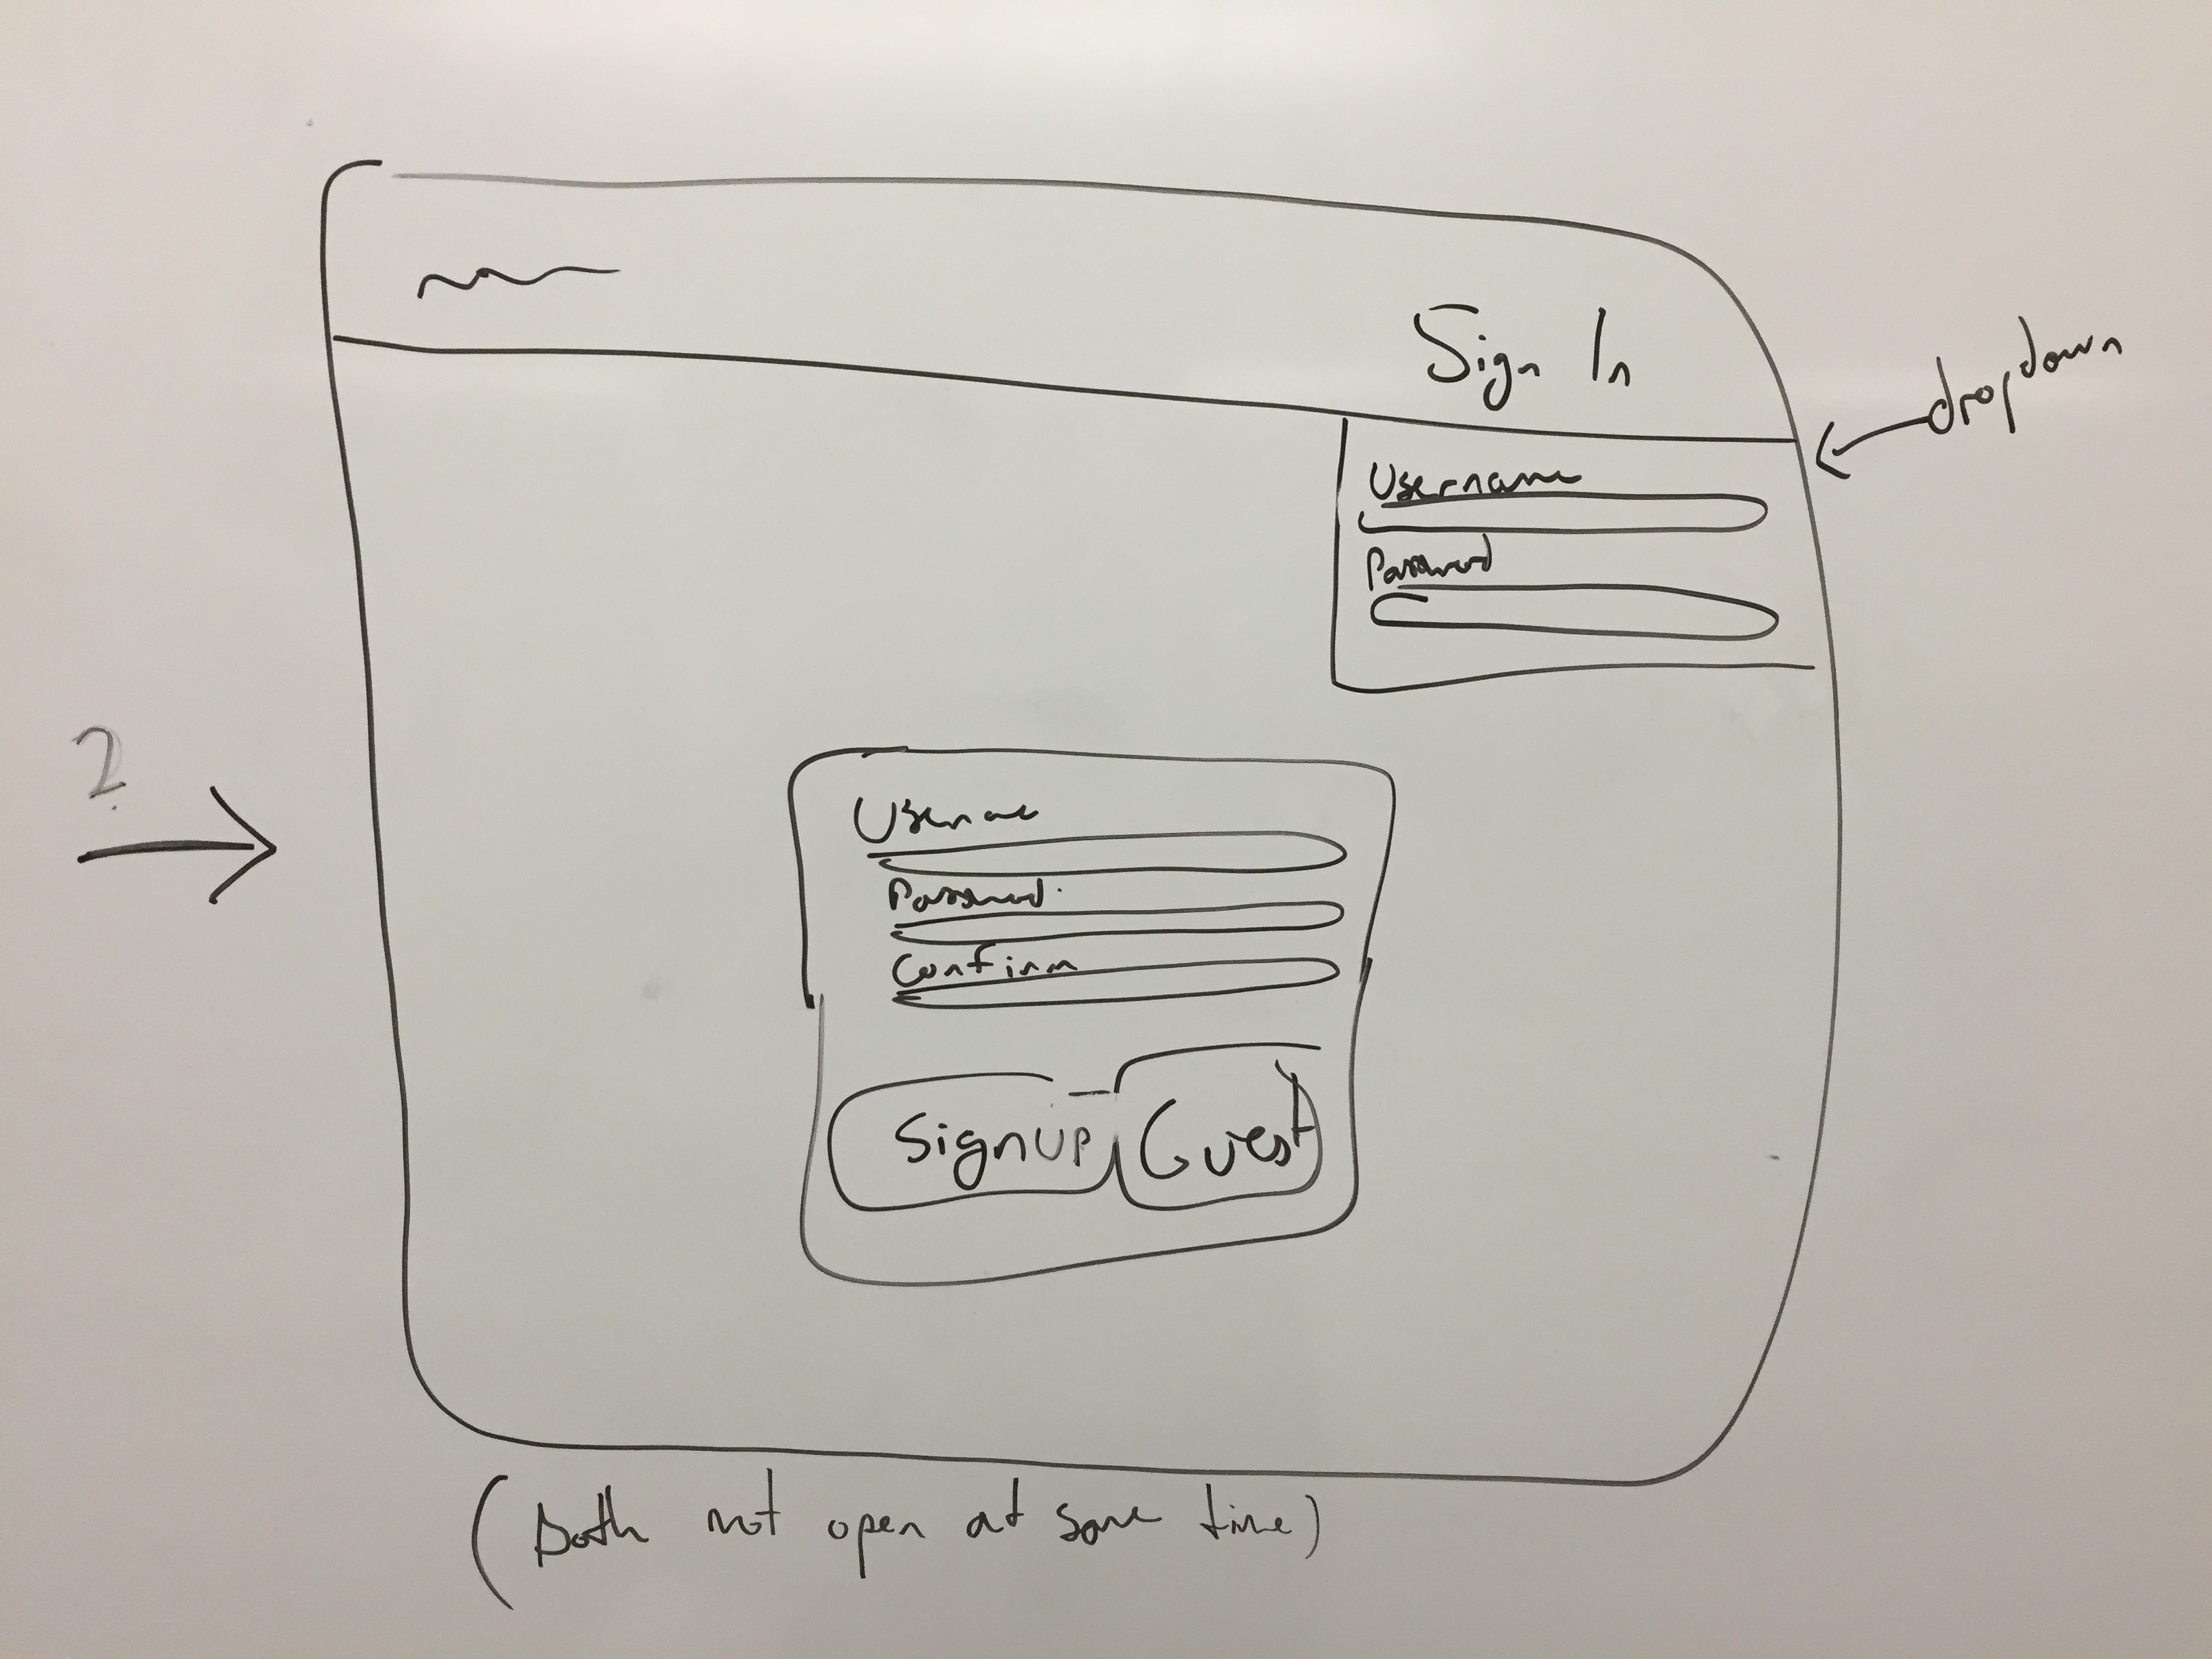 Sign In
dropdown
Username
Password
?
Username
Password
Confirm
Signup
Guest
(Both not open at same time)